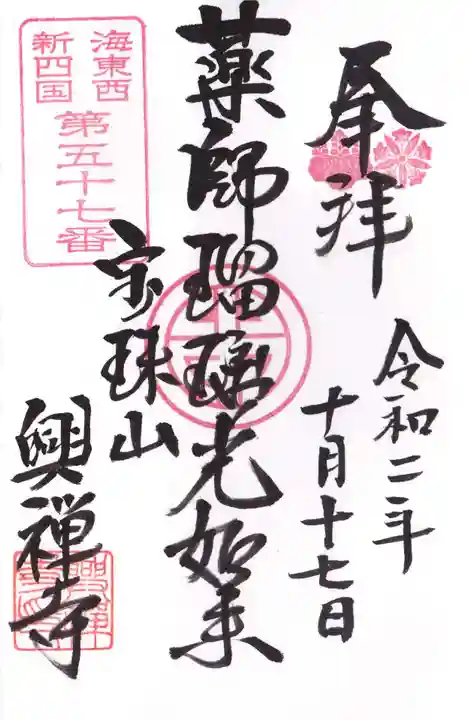 奉拝
令和二年
十月十七日
薬師瑠璃光如来
海東西
新四国
第五十七番
宝珠山
興禅寺